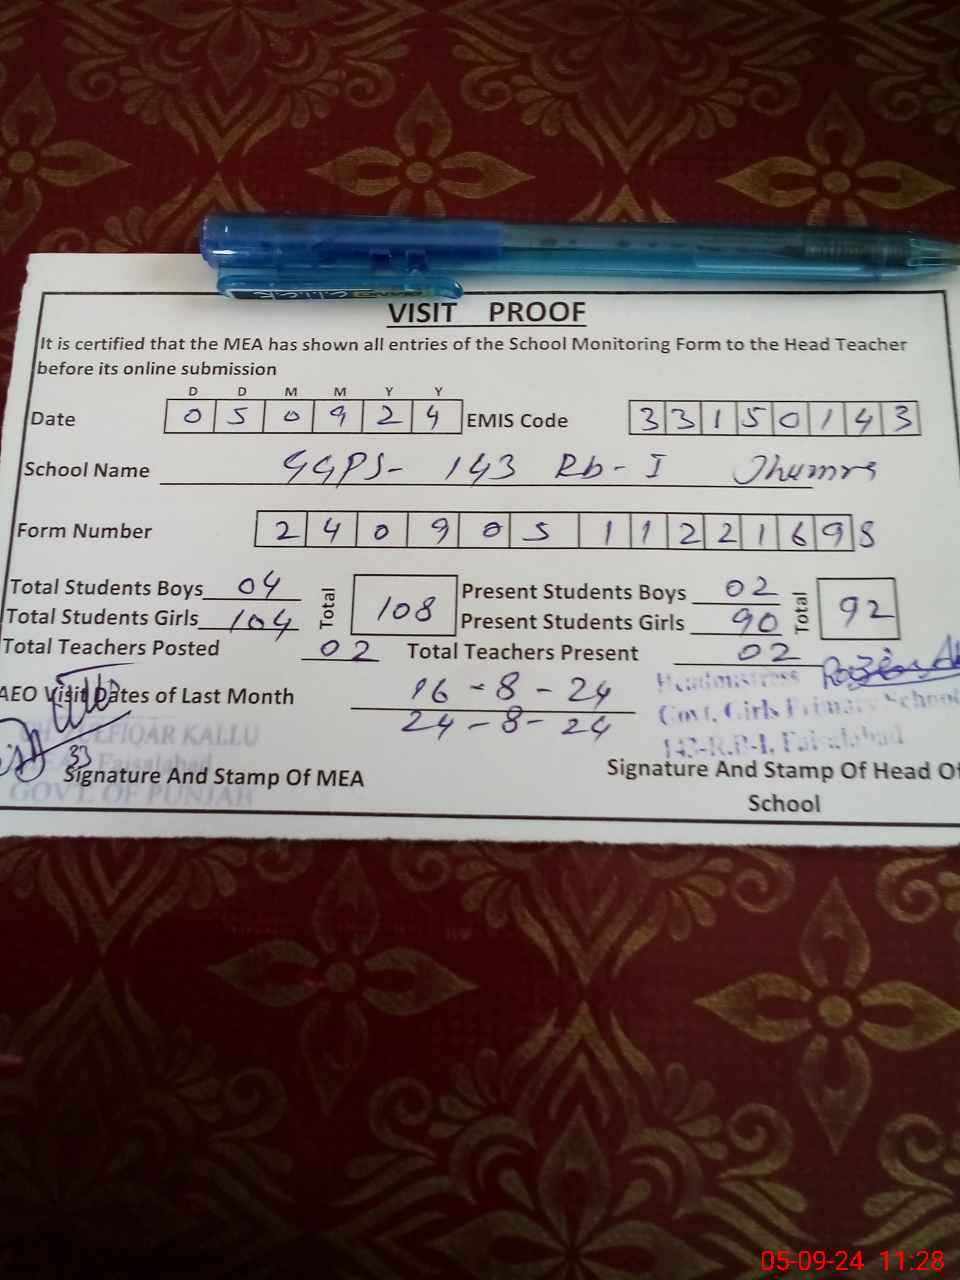 VISIT PROOF
It is certified that the MEA has shown all entries of the School Monitoring Form to the Head Teacher
before its online submission
D D M M Y Y
Date 0 5 0 9 2 4 EMIS Code 3 3 1 5 0 1 4 3
School Name GGPS- 143 Rb- I Jhumra
Form Number 2 4 0 9 0 5 1 1 2 2 1 6 9 8
Total Students Boys 04 Total 108 Present Students Boys 02 Total 92
Total Students Girls 104 Present Students Girls 90
Total Teachers Posted 02 Total Teachers Present 02
AEO Visit Dates of Last Month 16-8-24
24-8-24
Headmistress
Govt. Girls Primary School
143-R.B-I, Faisalabad
EFIQAR KALLU
Faisalabad
GOVT. OF PUNJAB
33
Signature And Stamp Of MEA
Signature And Stamp Of Head Of
School
05-09-24 11:28